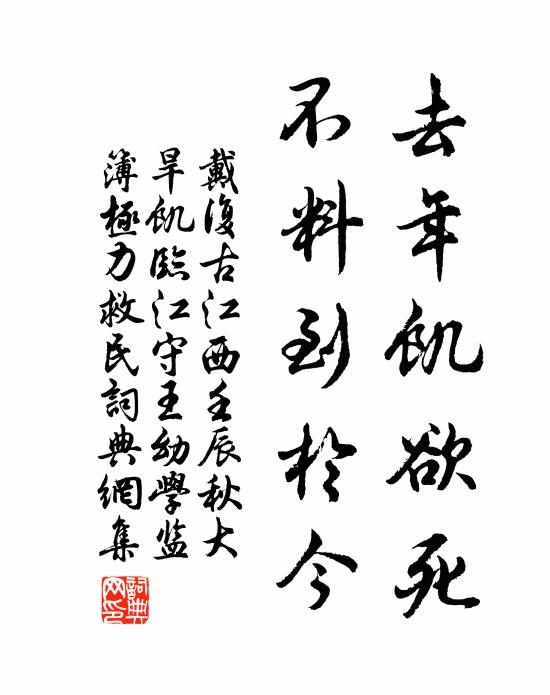 去年飢欲死
不料到於今
戴復古江西壬辰秋大
旱飢臨江守王幼學监
簿極力救民詞典網集
詞典网印